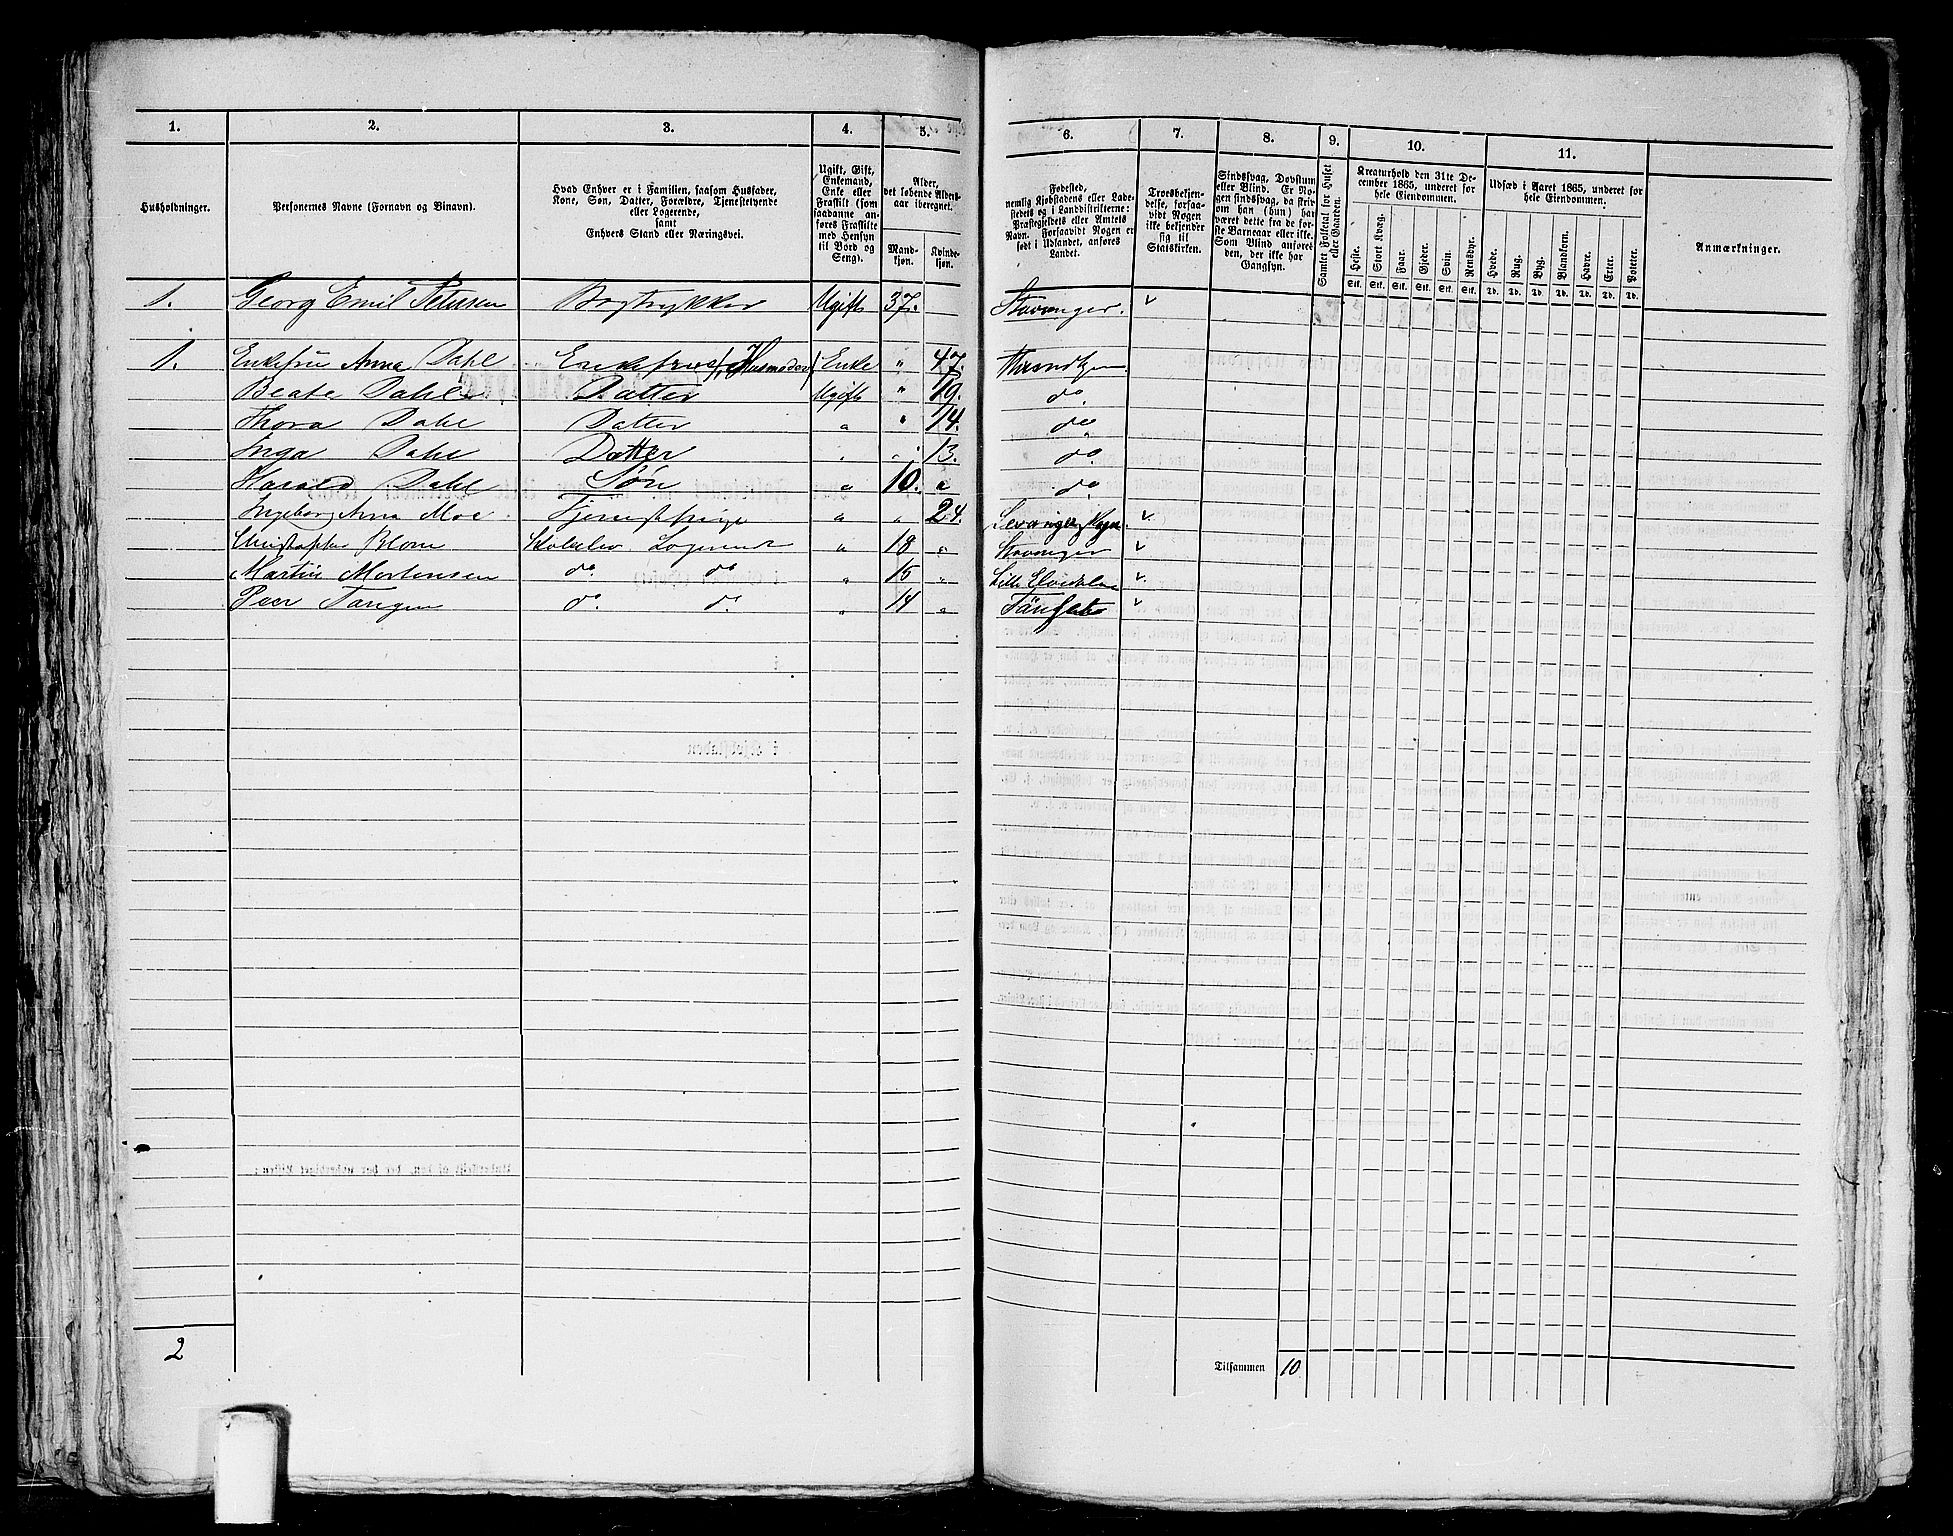 1. 2. 3. 4. 5. 6. 7. 8. 9. 10. 11.
Husholdninger.
Personernes Navne (Fornavn og Binavn).
Hvad Enhver er i Familien, saasom Husfader,
Kone, Søn, Datter, Forældre, Tjenestetyende
eller Logerende,
samt
Enhvers Stand eller Næringsvei.
Ugift, Gift,
Enkemand,
Enke eller
Fraskilt (som
saadanne an-
føres Fraskilte
med Hensyn
til Bord og
Seng).
Alder,
det løbende Alders-
aar iberegnet.
Mand-
kjøn.
Kvinde-
kjøn.
Fødested,
nemlig Kjøbstadens eller Lade-
stedets og i Landdistrikterne:
Præstegjeldets eller Amtets
Navn. Forsaavidt Nogen er
født i Udlandet, anføres
Landet.
Troesbekjen-
delse, forsaa-
vidt Nogen
ikke bekjender
sig til
Statskirken.
Sindssvag, Døvstum
eller Blind. Er No-
gen sindssvag, da skriv
om han (hun) har
været dette fra de før-
ste Barneaar eller ikke.
Som Blind anføres
den, der ikke har
Gangsyn.
Samlet Folketal for Huset
eller Gaarden.
Kreaturhold den 31te De-
cember 1865, underet for
hele Eiendommen.
Heste. Stort Kvæg. Faar. Gjeder. Svin. Rensdyr.
Stk. Stk. Stk. Stk. Stk. Stk.
Udsæd i Aaret 1865, underet for
hele Eiendommen.
Hvede. Rug. Byg. Blandkorn. Havre. Erter. Poteter.
Td. Td. Td. Td. Td. Td. Td.
Anmærkninger.
1. Georg Emil Petersen Bogtrykker Ugift 37. Stavanger. v
1. Enkefru Anna Dahl Enkefrue, (Husmoder) Enke " 47. Throndhjem
Beate Dahl Datter Ugift " 19. do
Thora Dahl Datter " " 14. do
Inga Dahl Datter " " 13. do
Harald Dahl Søn " 10. " do
Ingeborg Anna Moe Tjenestepige " " 24. Levanger v.
Christopher Blom Logerende " 18 " Stavanger v
Martin Mortensen do. do " 15 " Lille Elvedalen v.
Peer Tangen do. do. " 14 " Tønset v
2
Tilsammen 10